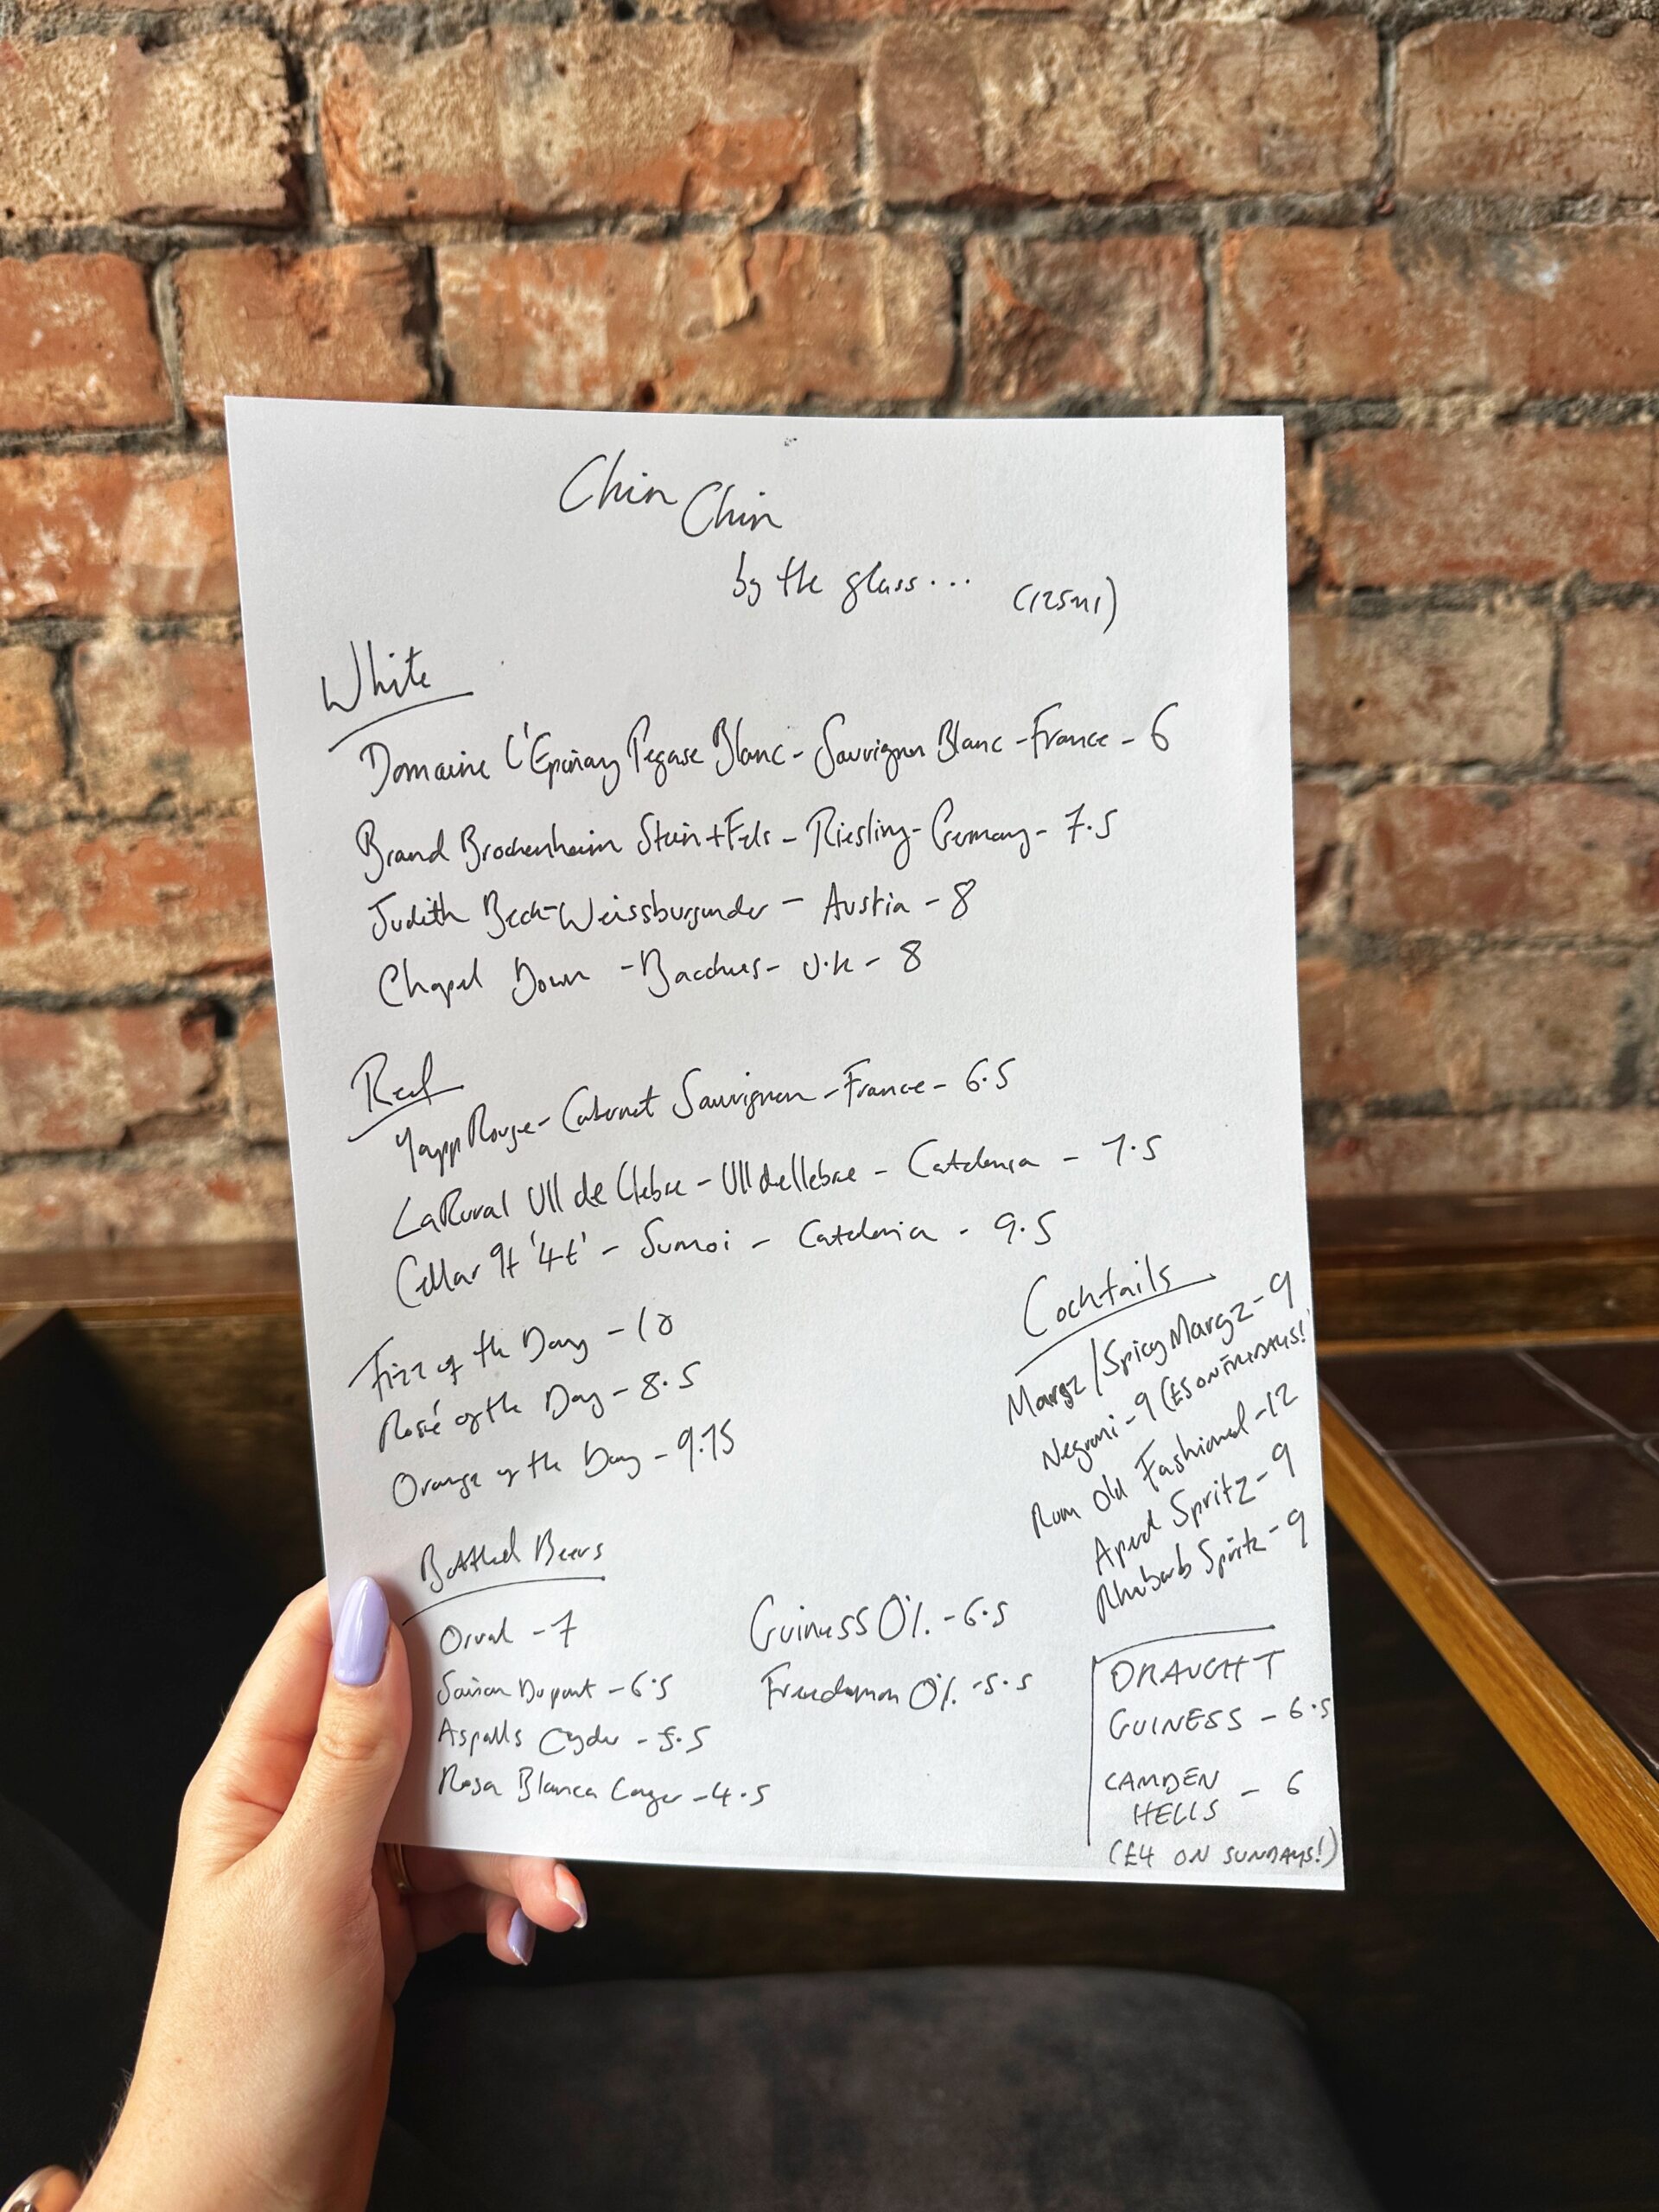 Chin Chin
by the glass... (125ml)
White
Domaine L'Epinay Pegase Blanc - Sauvignon Blanc - France - 6
Brand Brockenheim Stein + Fels - Riesling - Germany - 7.5
Judith Beck - Weissburgunder - Austria - 8
Chapel Down - Bacchus - U.K - 8
Red
Yapp Rouge - Cabernet Sauvignon - France - 6.5
La Rural Ull de Llebre - Ull de llebre - Catalonia - 7.5
Cellar 9+ '4t' - Sumoi - Catalonia - 9.5
Fizz of the Day - 10
Rosé of the Day - 8.5
Orange of the Day - 9.75
Cocktails
Margz / Spicy Margz - 9
Negroni - 9 (£5 ON THURSDAYS!)
Rum Old Fashioned - 12
Aperol Spritz - 9
Rhubarb Spritz - 9
Bottled Beers
Orval - 7
Saison Dupont - 6.5
Aspalls Cyder - 5.5
Rosa Blanca Lager - 4.5
Guiness 0% - 6.5
Freedamm 0% - 5.5
DRAUGHT
GUINESS - 6.5
CAMDEN HELLS - 6
(£4 ON SUNDAYS!)